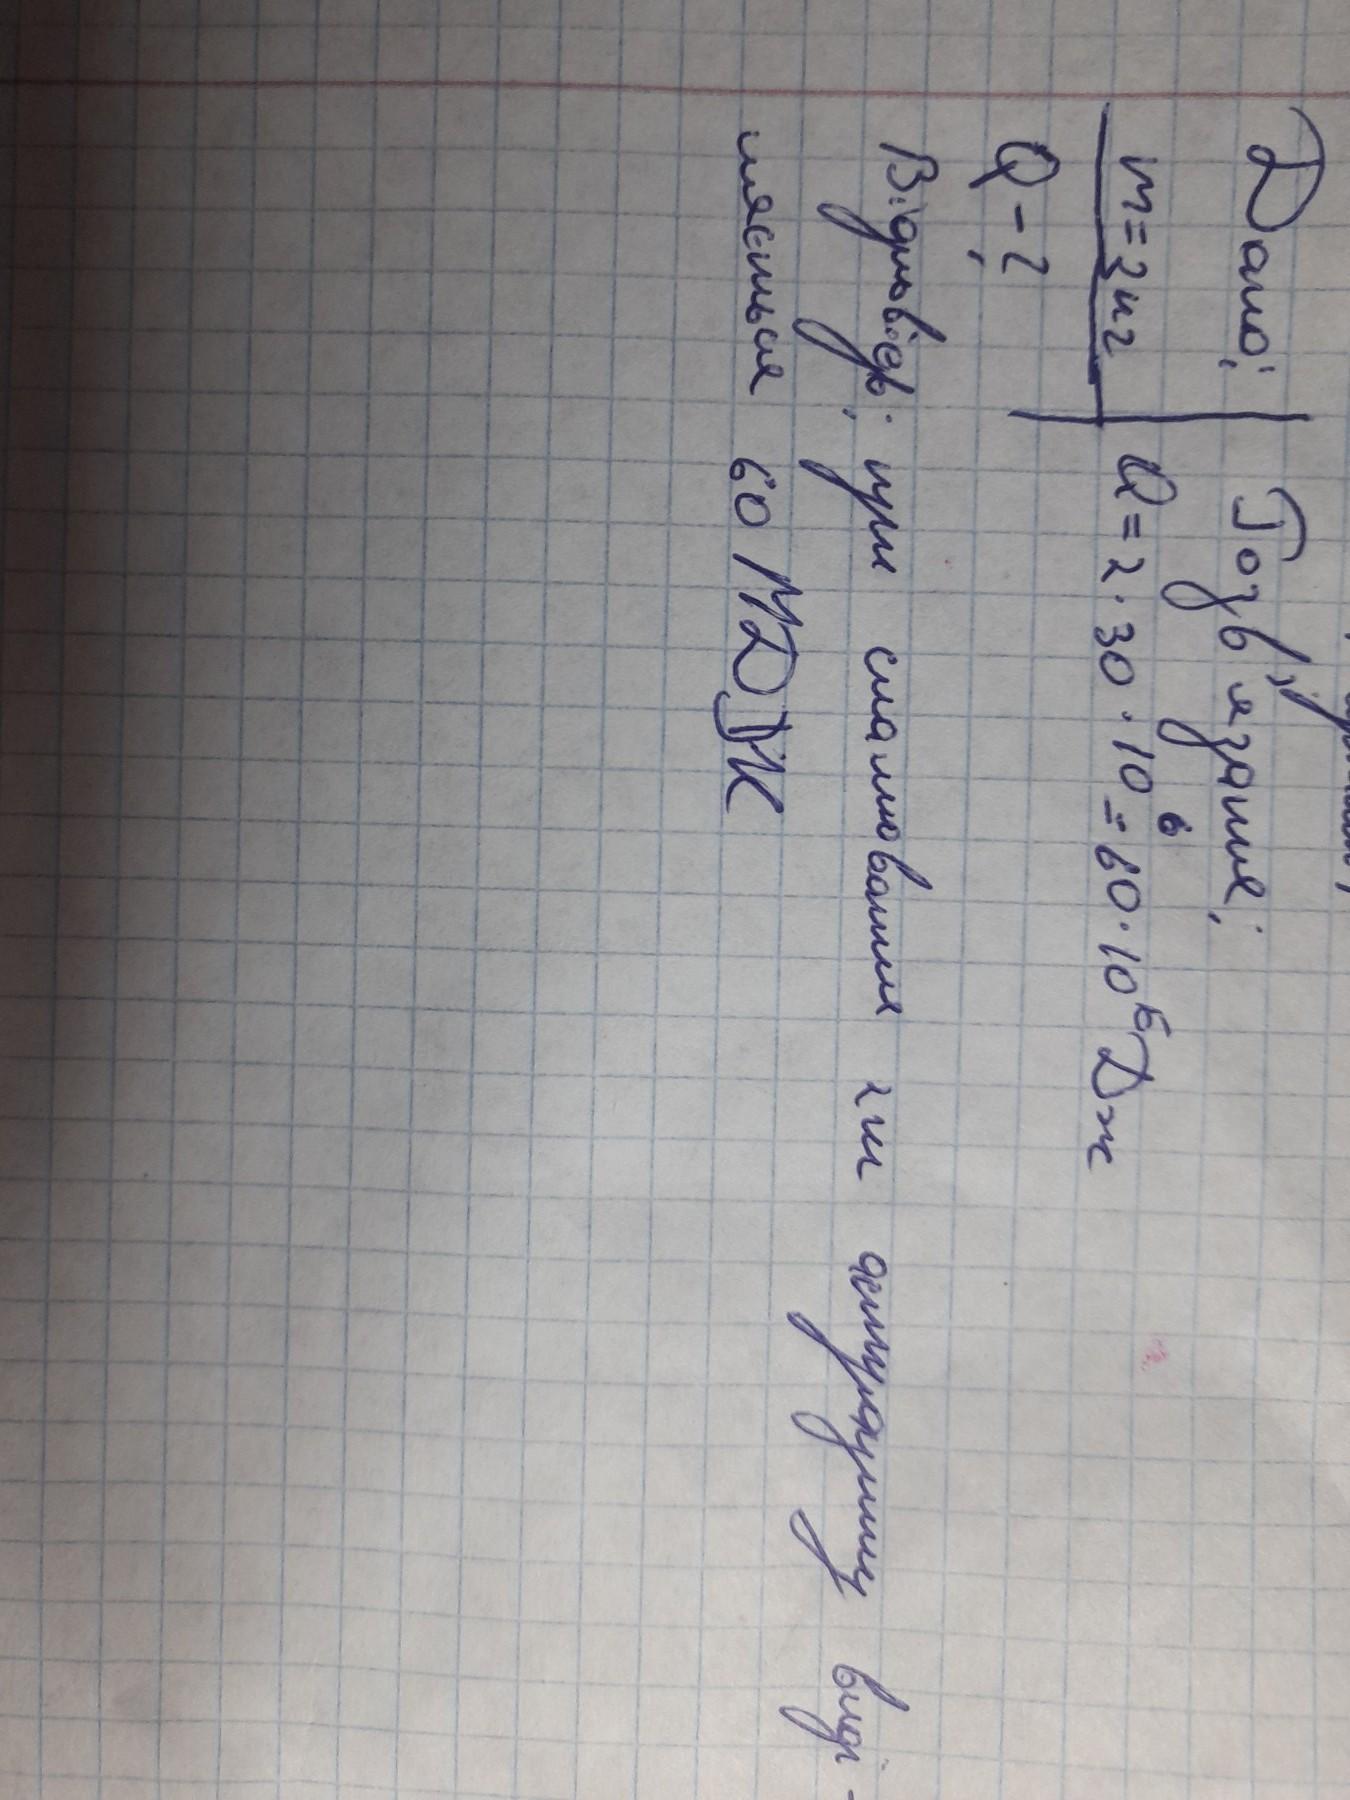 Дано: Розв'язання:
m=2кг Q=2·30·10⁶=60·10⁶Дж
Q-?
Відповідь: при спалюванні 2кг виді-
ляється 60 МДЖ